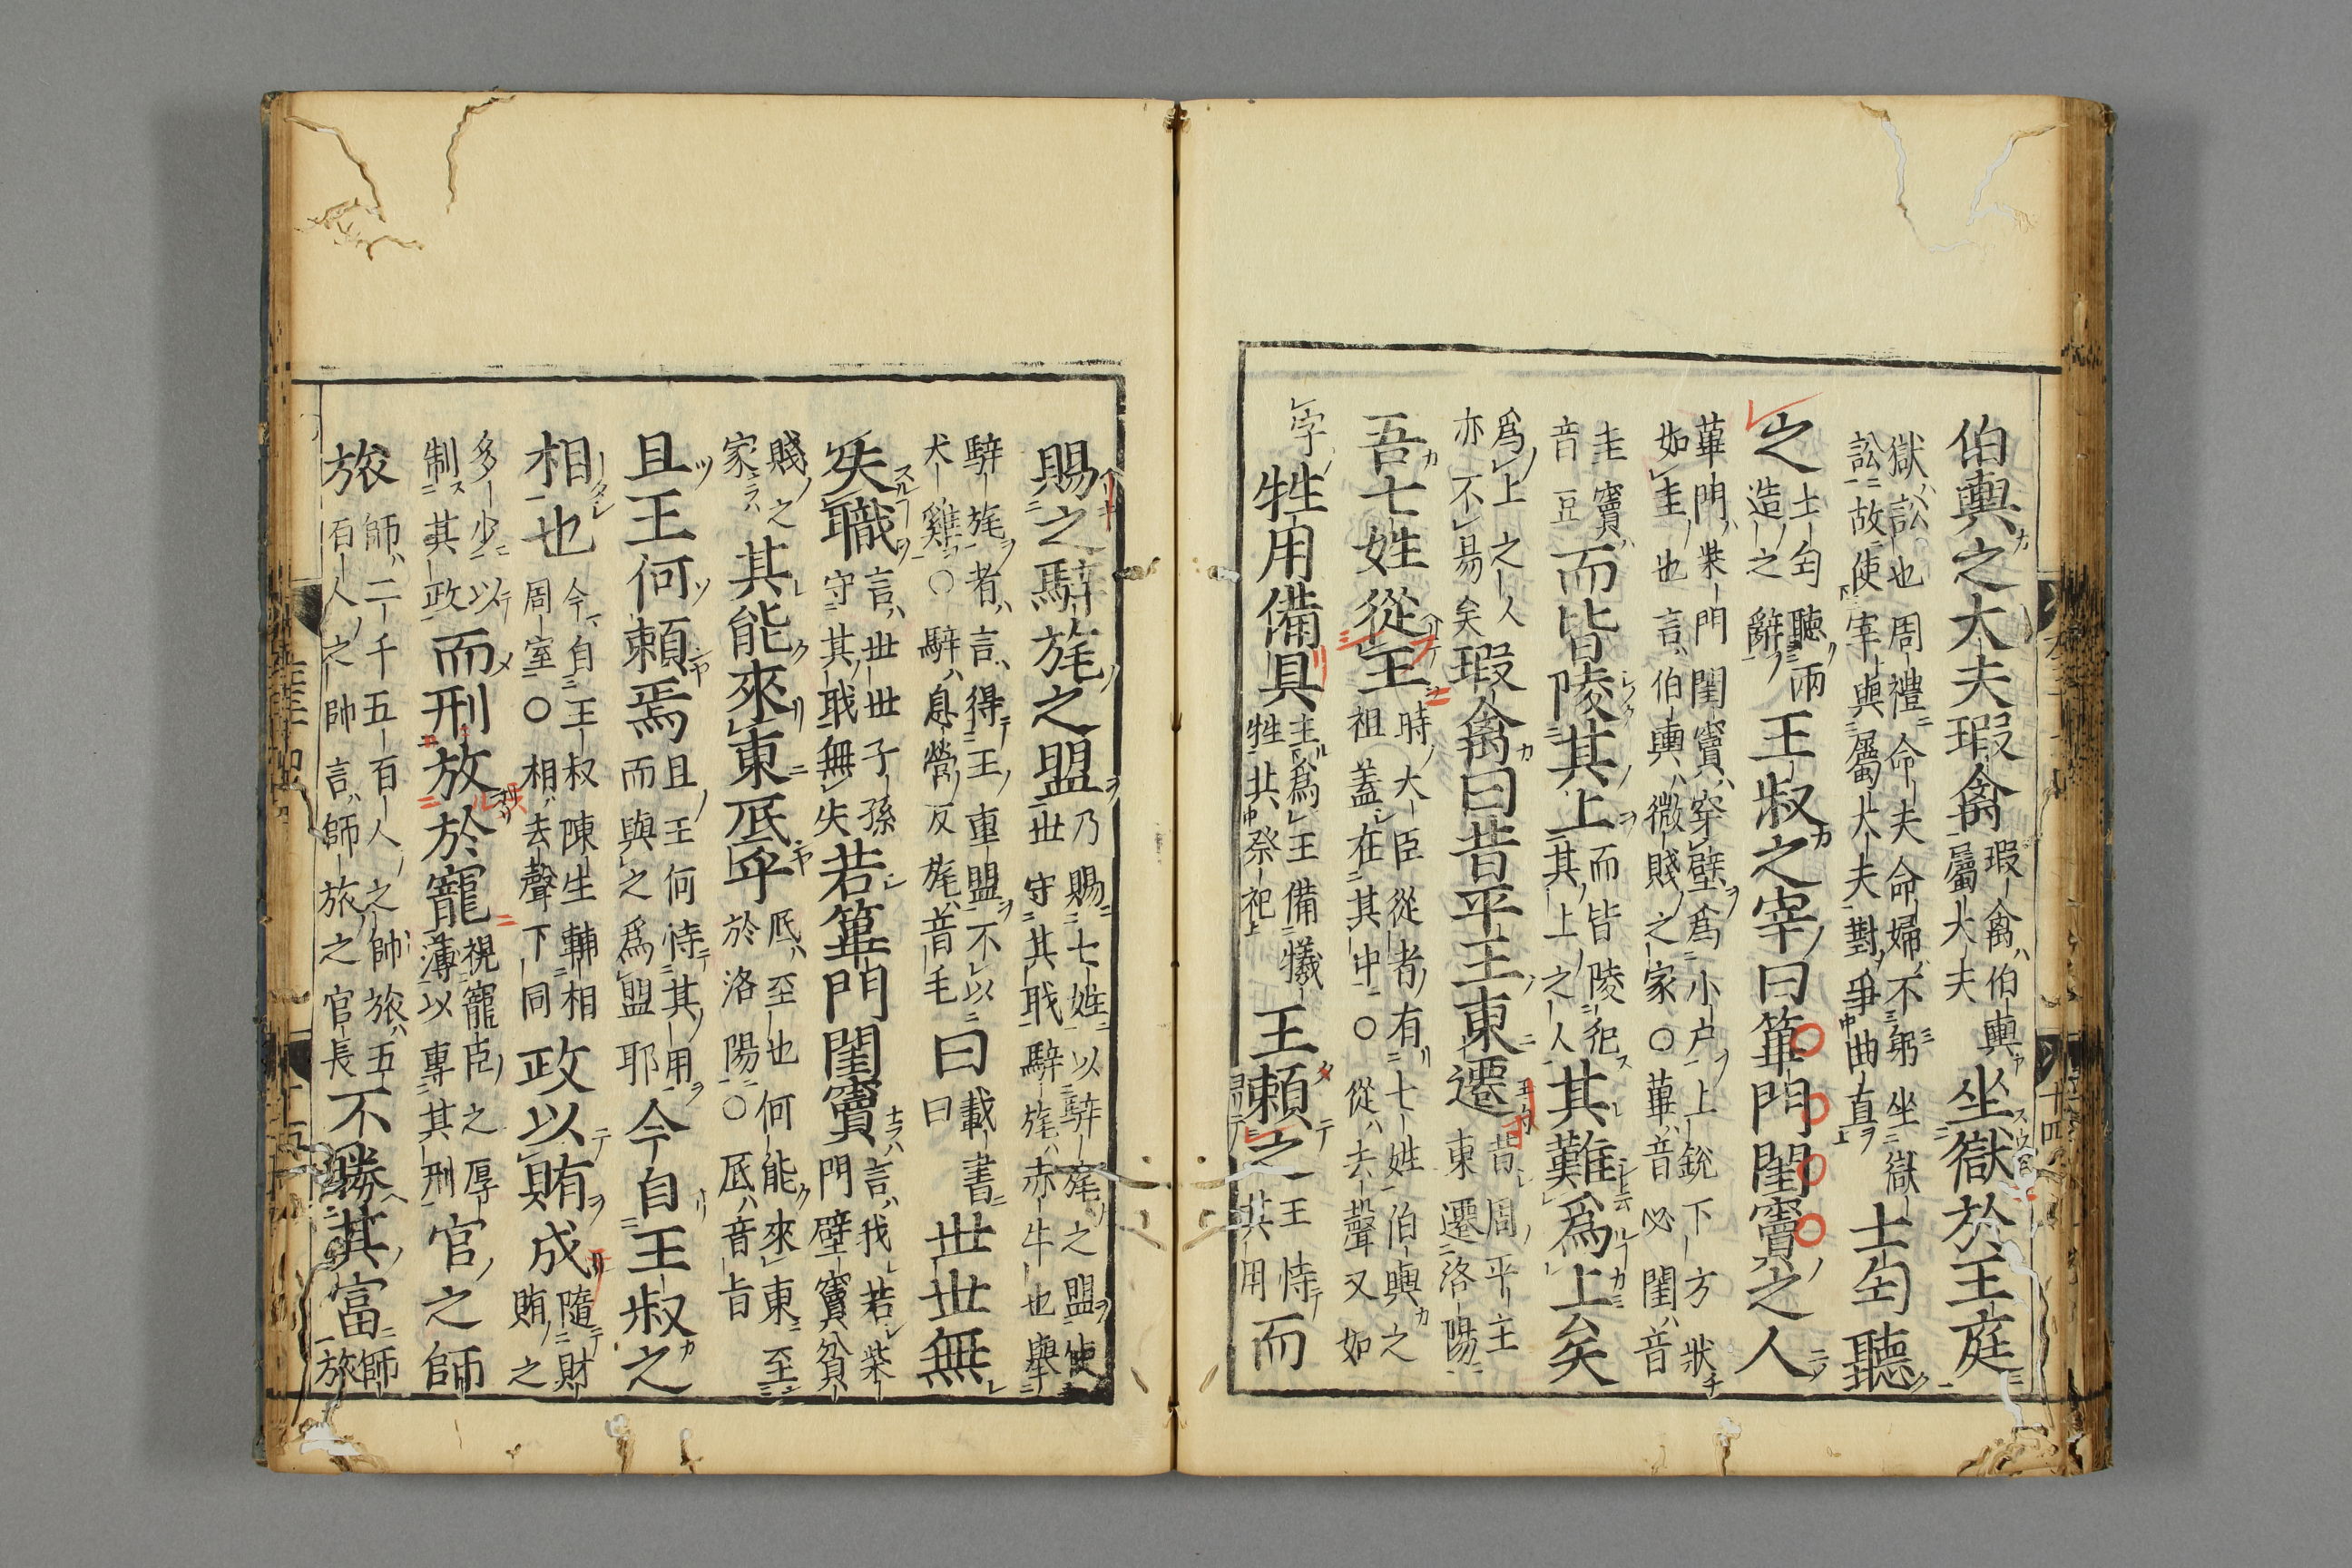 伯輿之大夫瑕禽瑕禽伯輿屬大夫坐獄於王庭
獄訟也周禮命夫命婦不躬坐獄訟故使宰與屬大夫對爭曲直士匄聽
之士匄聽兩造之辭王叔之宰曰篳門閨竇之人
篳門柴門閨竇穿壁為小戶上銳下方狀如圭也言伯輿微賤之家○篳音必閨音
圭竇音豆而皆陵其上而皆陵犯其上之人其難為上矣
為上之人亦不易矣瑕禽曰昔平王東遷昔周平王東遷洛陽
吾七姓從王時大臣從者有七姓伯輿之祖蓋在其中○從去聲又如
字牲用備具主為王備犧牲共祭祀王賴之王恃其用而
賜之騂旄之盟乃賜七姓以騂旄之盟使世守其職騂旄赤牛也舉
騂旄者言得王重盟不以犬雞○騂息營反旄音毛曰載書曰世世無
失職言世世子孫守其職無失若篳門閨竇言我若柴門壁竇貧
賤之家其能來東厎乎厎至也何能來東至於洛陽○厎音旨
且王何賴焉且王何恃其用而與之為盟耶今自王叔之
相也今自王叔陳生輔相周室○相去聲下同政以賄成隨財賄之
多少以制其政而刑放於寵視寵臣之厚薄以專其刑官之師
旅師二千五百人之帥旅五百人之帥言師旅之官長不勝其富師旅